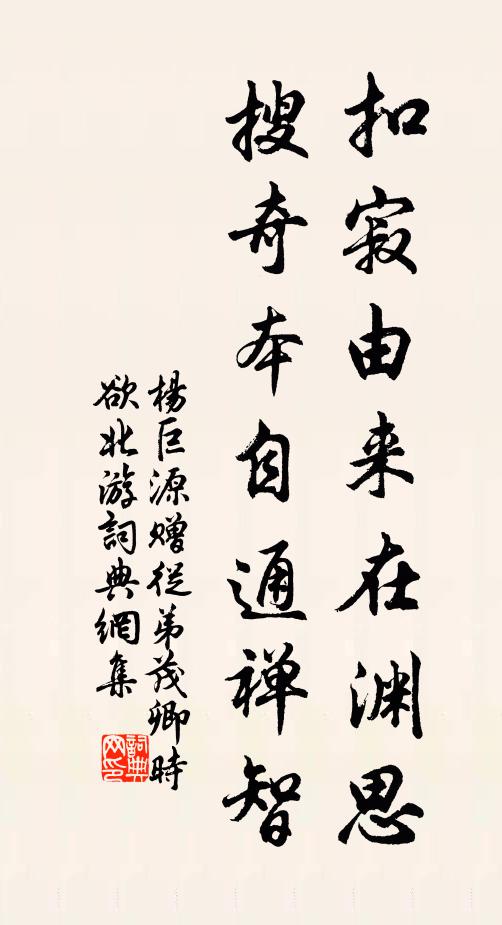 扣寂由来在渊思
搜奇本自通禅智
楊巨源贈從弟茂卿時
欲北游詞典網集
詞典
网印